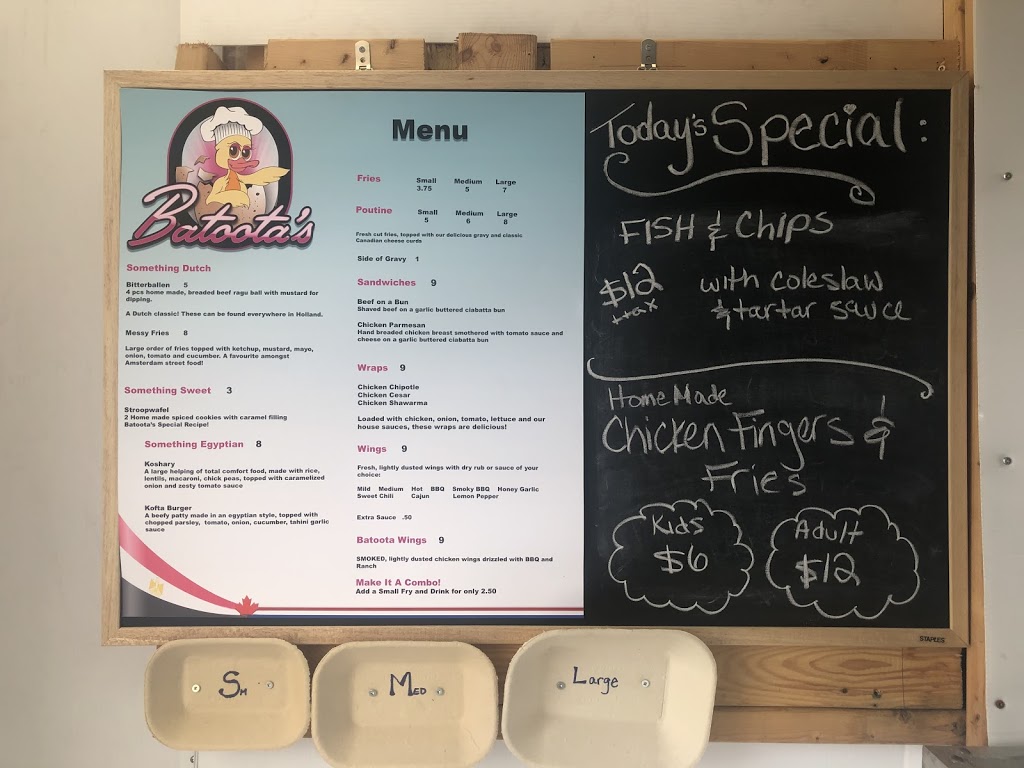 Batoota's
Something Dutch
Bitterballen 5
4 pcs home made, breaded beef ragu ball with mustard for
dipping.
A Dutch classic! These can be found everywhere in Holland.
Messy Fries 8
Large order of fries topped with ketchup, mustard, mayo,
onion, tomato and cucumber. A favourite amongst
Amsterdam street food!
Something Sweet 3
Stroopwafel
2 Home made spiced cookies with caramel filling
Batoota's Special Recipe!
Something Egyptian 8
Koshary
A large helping of total comfort food, made with rice,
lentils, macaroni, chick peas, topped with caramelized
onion and zesty tomato sauce
Kofta Burger
A beefy patty made in an egyptian style, topped with
chopped parsley, tomato, onion, cucumber, tahini garlic
sauce
Menu
Fries Small Medium Large
3.75 5 7
Poutine Small Medium Large
5 6 8
Fresh cut fries, topped with our delicious gravy and classic
Canadian cheese curds
Side of Gravy 1
Sandwiches 9
Beef on a Bun
Shaved beef on a garlic buttered ciabatta bun
Chicken Parmesan
Hand breaded chicken breast smothered with tomato sauce and
cheese on a garlic buttered ciabatta bun
Wraps 9
Chicken Chipotle
Chicken Cesar
Chicken Shawarma
Loaded with chicken, onion, tomato, lettuce and our
house sauces, these wraps are delicious!
Wings 9
Fresh, lightly dusted wings with dry rub or sauce of your
choice:
Mild Medium Hot BBQ Smoky BBQ Honey Garlic
Sweet Chili Cajun Lemon Pepper
Extra Sauce .50
Batoota Wings 9
SMOKED, lightly dusted chicken wings drizzled with BBQ and
Ranch
Make It A Combo!
Add a Small Fry and Drink for only 2.50
Today's Special:
FISH & Chips
$12 with coleslaw
+tax & tartar sauce
HomeMade
Chicken Fingers &
Fries
Kids
$6
Adult
$12
STAPLES
Sm
Med
Large